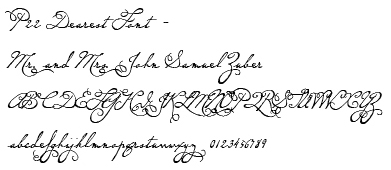 P22 Dearest Font -
Mr. and Mrs. John Samuel Zuber
ABCDEFGHIJKLMNOPQRSTUVWXYZ
abcdefghijklmnopqrstuvwxyz 0123456789